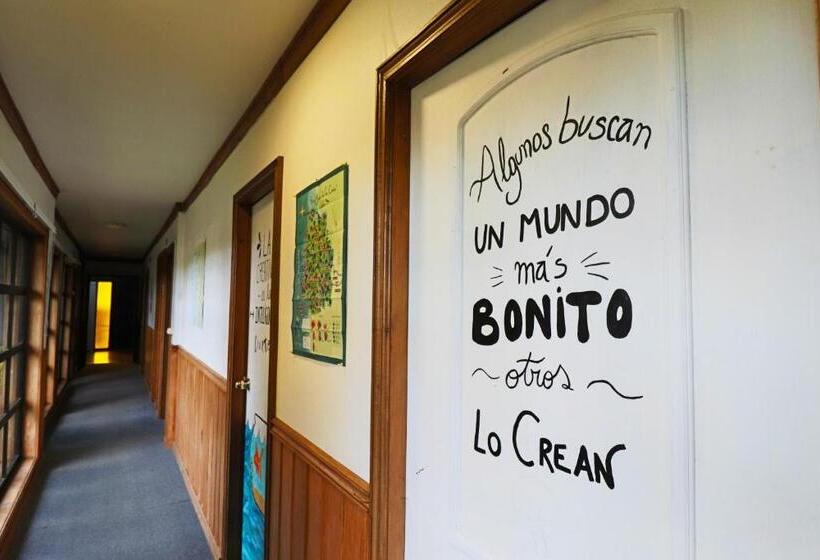 Algunos buscan
UN MUNDO
más
BONiTO
otros
Lo CREAN
LA